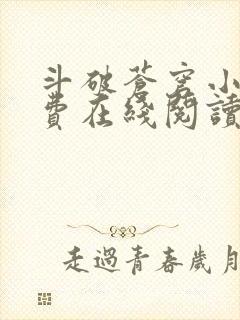 斗破蒼穹小
費在綫閱讀
走過青春歲月